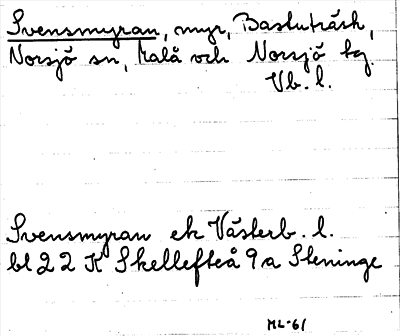 Svensmyran, myr, Bastuträsk,
Norsjö sn, Malå och Norsjö tg.
Vb. l.
Svensmyran ek Västerb. l.
bl 22 K Skellefteå 9a Steninge
ML-61